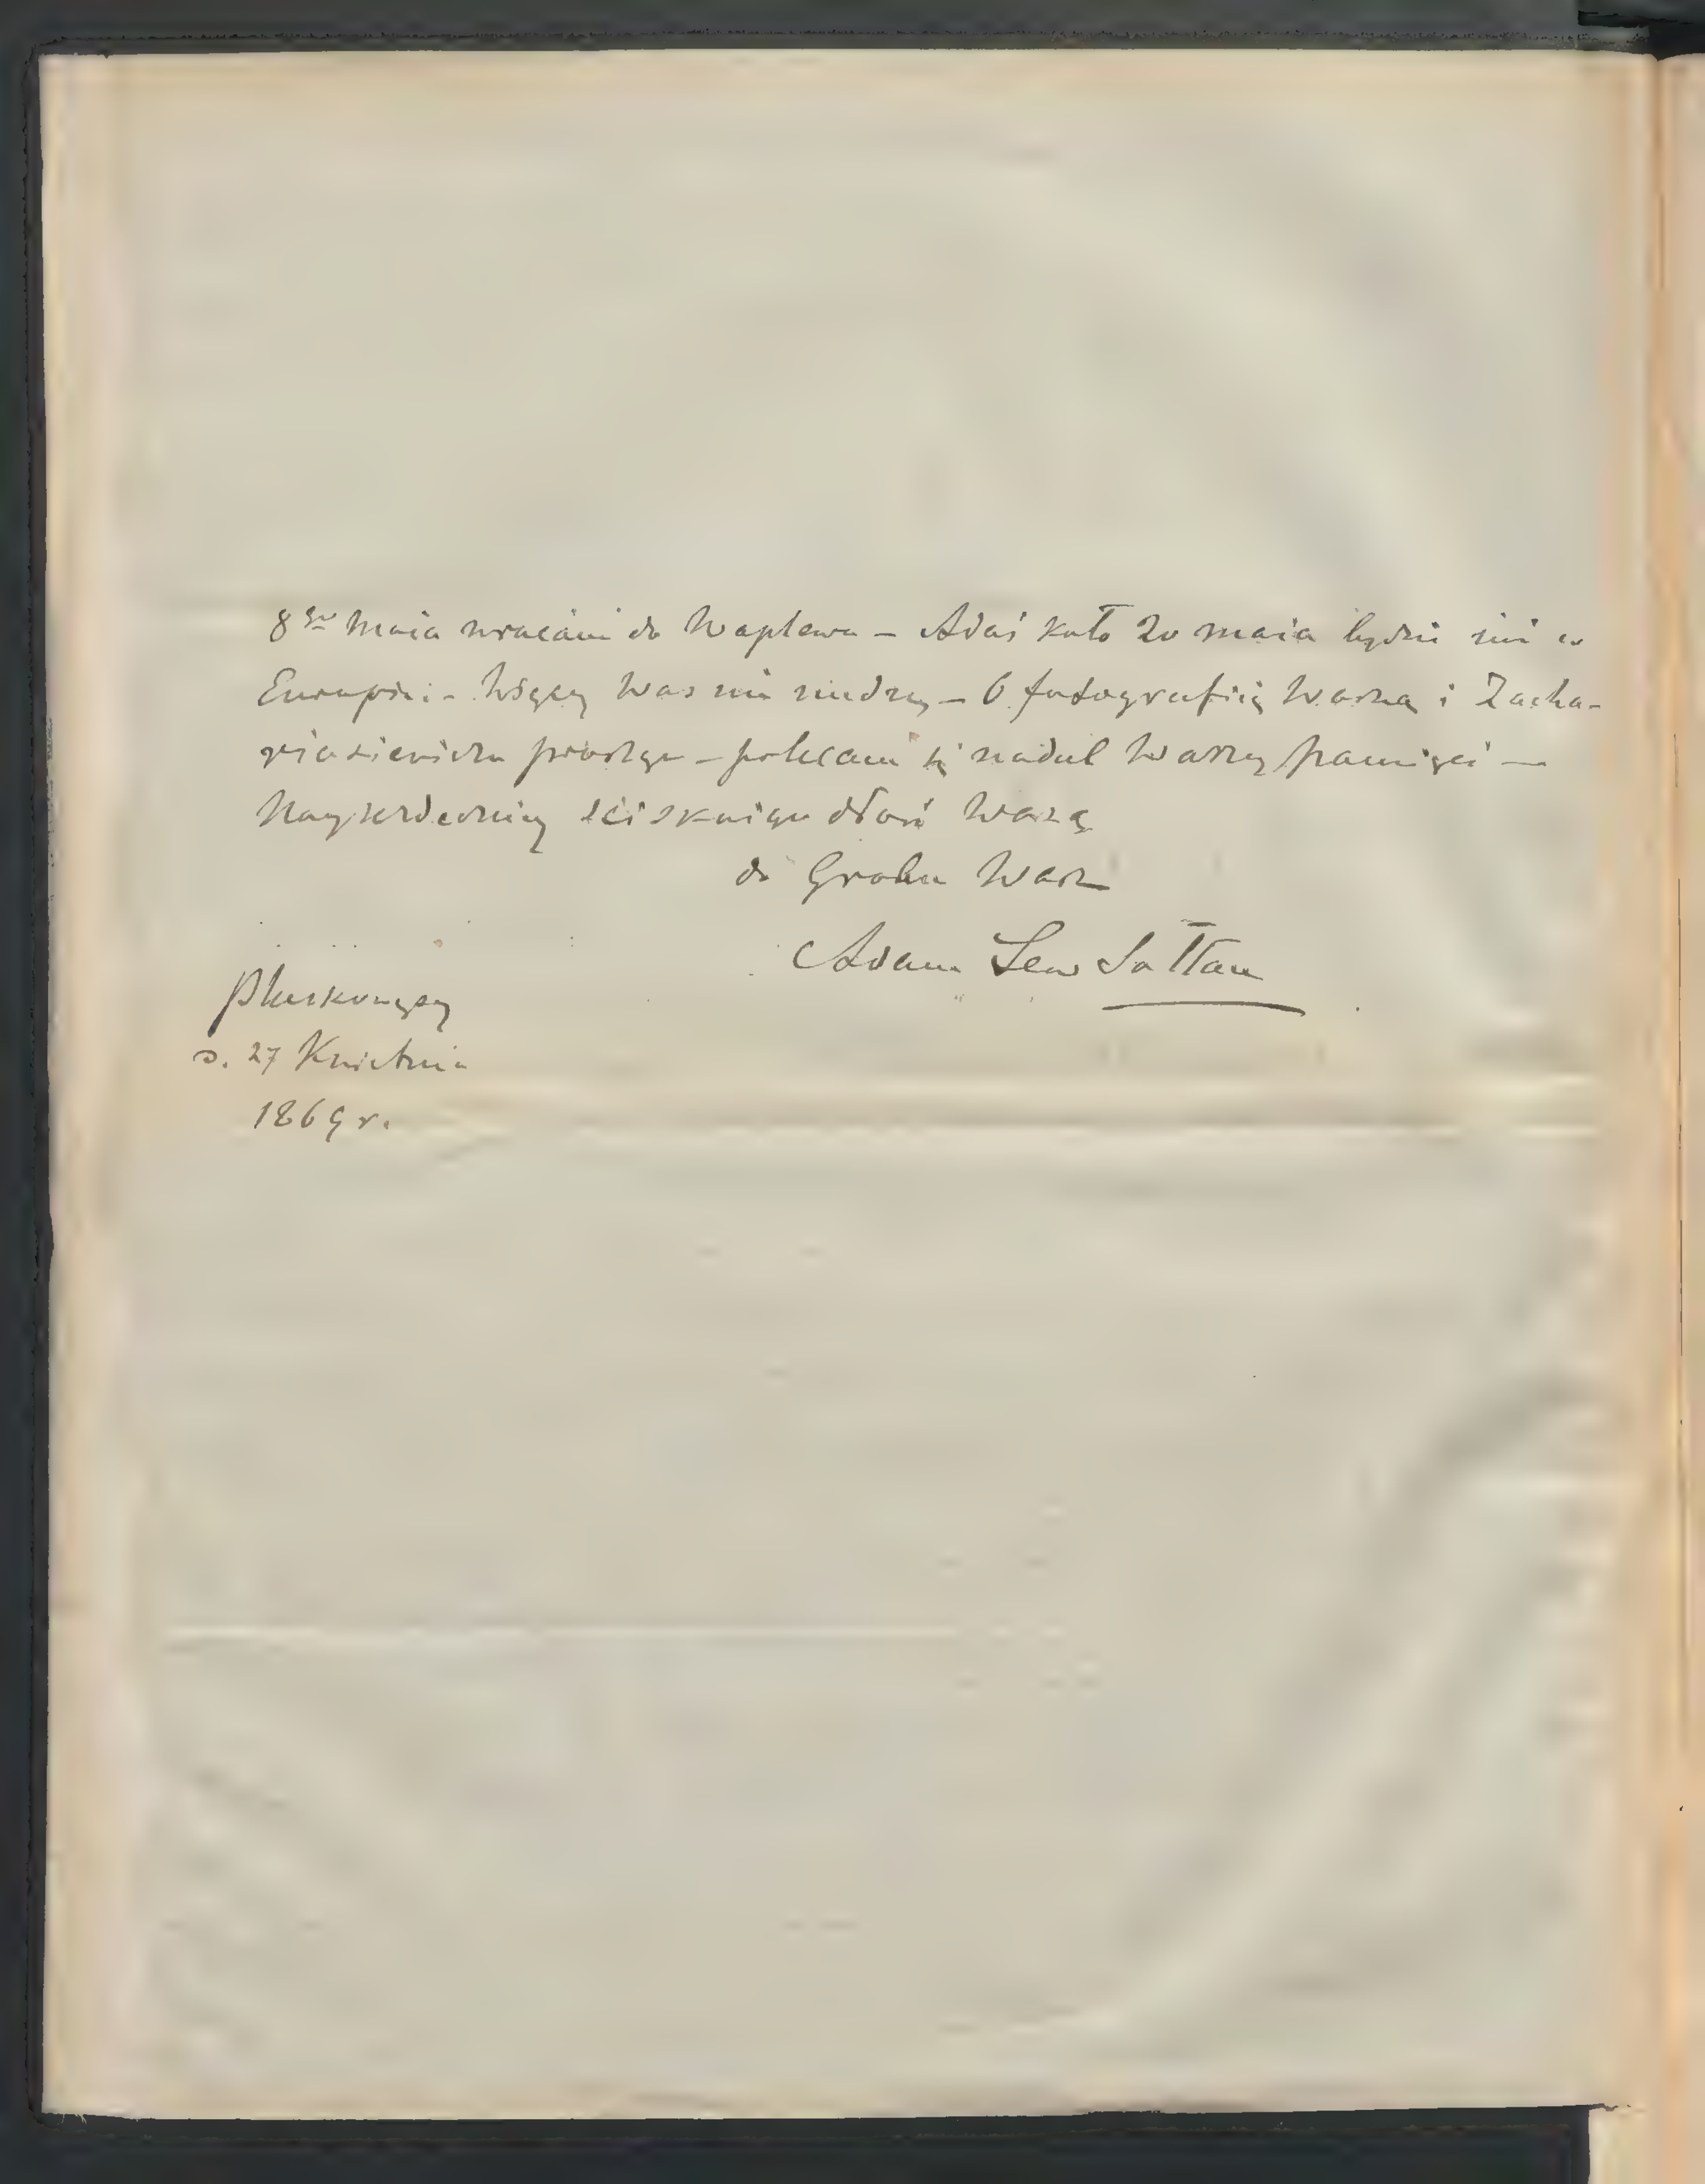 8go Maia wracam do Waplewa – Adaś koło 20 maia będzie już w
Europie. – Więcey Was nie nudzę – O fotografiię Waszą i Zacha-
riasiewicza proszę – polecam się nadal Waszey pamięci —
Nayserdeczniey ściskaiąc dłoń Waszą
do Grobu Wasz
Adam Lew Sołtan
Pluskowęsy
d. 27 Kwietnia
1869 r.